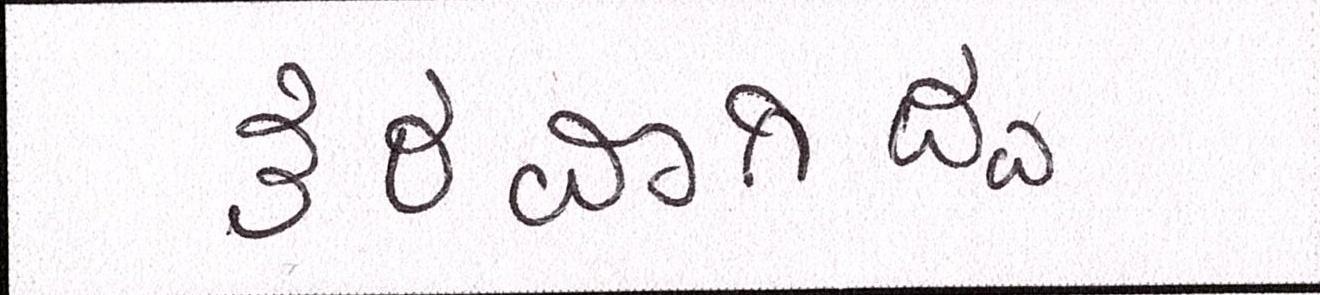 ತೆರವಾಗಿದ್ದ